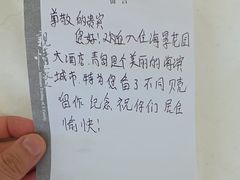 尊敬的贵宾
您好！欢迎入住海景花园
大酒店，青岛是个美丽的海滨
城市，特为您留了不同贝壳
留作纪念，祝你们居住
愉快！